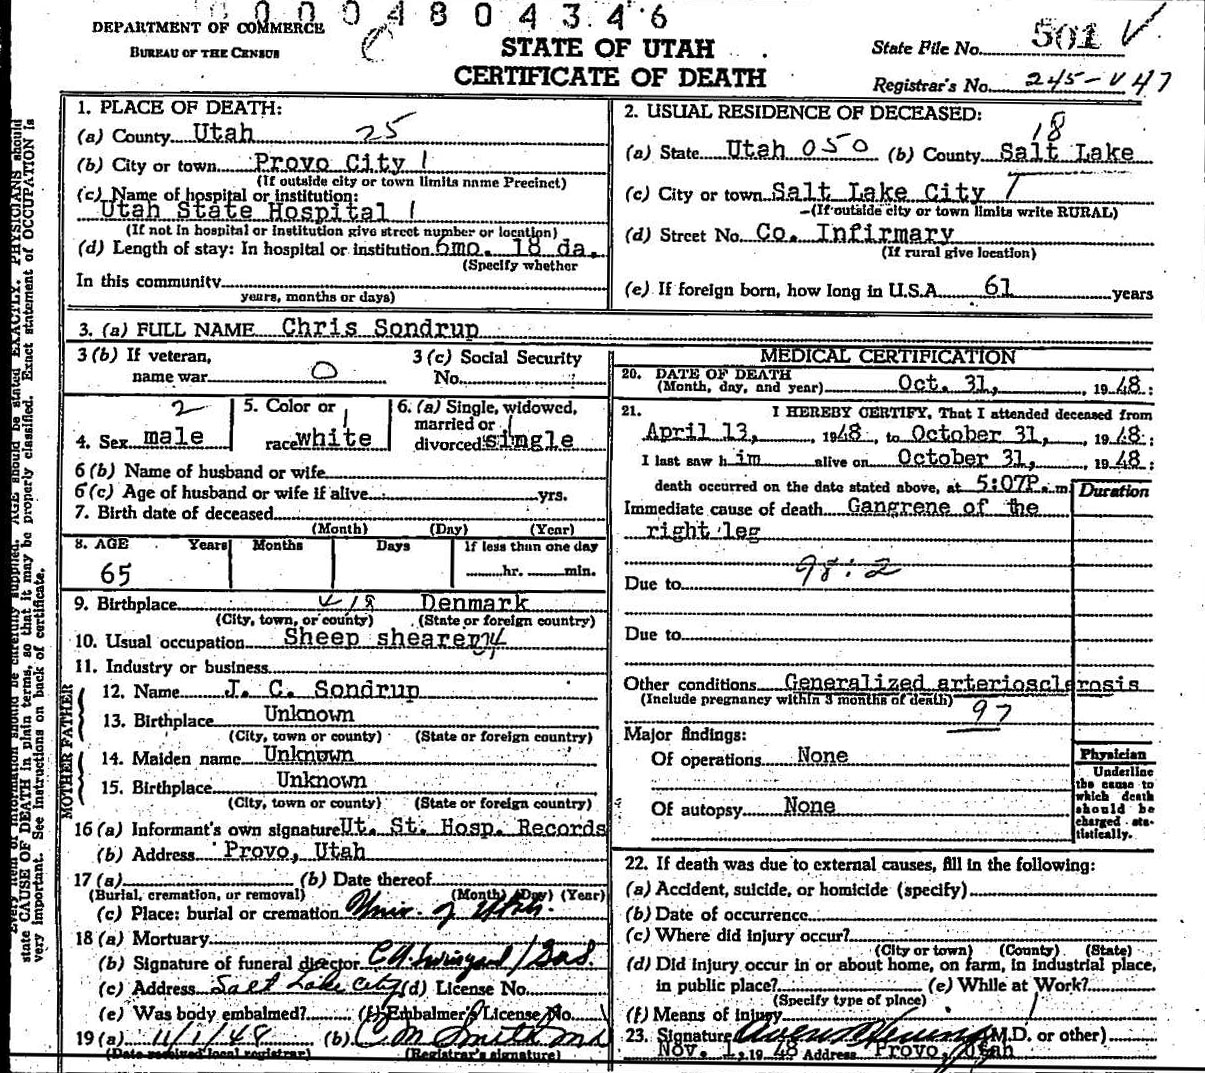 0 0 0 4 8 0 4 3 4 6
DEPARTMENT OF COMMERCE
BUREAU OF THE CENSUS
STATE OF UTAH
CERTIFICATE OF DEATH
State File No. 501 V
Registrar's No. 245-V 47
1. PLACE OF DEATH:
(a) County Utah 25
(b) City or town Provo City 1
(If outside city or town limits name Precinct)
(c) Name of hospital or institution:
Utah State Hospital 1
(If not in hospital or institution give street number or location)
(d) Length of stay: In hospital or institution 6mo. 18 da.
(Specify whether
In this community
years, months or days)
2. USUAL RESIDENCE OF DECEASED:
18
(a) State Utah 050 (b) County Salt Lake
(c) City or town Salt Lake City
(If outside city or town limits write RURAL)
(d) Street No. Co. Infirmary
(If rural give location)
(e) If foreign born, how long in U.S.A. 61 years
3. (a) FULL NAME Chris Sondrup
3 (b) If veteran,
name war 0
3 (c) Social Security
No.
2
4. Sex male
5. Color or 1
race white
6. (a) Single, widowed,
married or 1
divorced single
6 (b) Name of husband or wife
6 (c) Age of husband or wife if alive yrs.
7. Birth date of deceased
(Month) (Day) (Year)
8. AGE Years Months Days If less than one day
65 hr. min.
9. Birthplace 418 Denmark
(City, town, or county) (State or foreign country)
10. Usual occupation Sheep shearer
11. Industry or business
FATHER
12. Name J. C. Sondrup
13. Birthplace Unknown
(City, town or county) (State or foreign country)
MOTHER
14. Maiden name Unknown
15. Birthplace Unknown
(City, town or county) (State or foreign country)
16 (a) Informant's own signature Ut. St. Hosp. Records
(b) Address Provo, Utah
17 (a) (b) Date thereof
(Burial, cremation, or removal) (Month) (Day) (Year)
(c) Place: burial or cremation Univ. of Utah.
18 (a) Mortuary
(b) Signature of funeral director
(c) Address Salt Lake City (d) License No.
(e) Was body embalmed? (f) Embalmer's License No.
19 (a) 11/1/48 (b) C M Smith MD
(Date received local registrar) (Registrar's signature)
MEDICAL CERTIFICATION
20. DATE OF DEATH
(Month, day, and year) Oct. 31, , 1948;
21. I HEREBY CERTIFY, That I attended deceased from
April 13, 1948, to October 31, , 1948;
I last saw him alive on October 31, 1948;
death occurred on the date stated above, at 5:07P. m.
Duration
Immediate cause of death Gangrene of the
right leg
98:2
Due to
Due to
Other conditions Generalized arteriosclerosis
(Include pregnancy within 3 months of death) 97
Major findings:
Of operations None
Of autopsy None
Physician
Underline
the cause to
which death
should be
charged sta-
tistically.
22. If death was due to external causes, fill in the following:
(a) Accident, suicide, or homicide (specify)
(b) Date of occurrence
(c) Where did injury occur?
(City or town) (County) (State)
(d) Did injury occur in or about home, on farm, in industrial place,
in public place? (e) While at Work?
(Specify type of place)
(f) Means of injury
23. Signature (M.D. or other)
Nov. 1, 1948 Address Provo, Utah
Every item of information should be carefully supplied. AGE should be stated EXACTLY. PHYSICIANS should
state CAUSE OF DEATH in plain terms, so that it may be properly classified. Exact statement of OCCUPATION is
very important. See instructions on back of certificate.